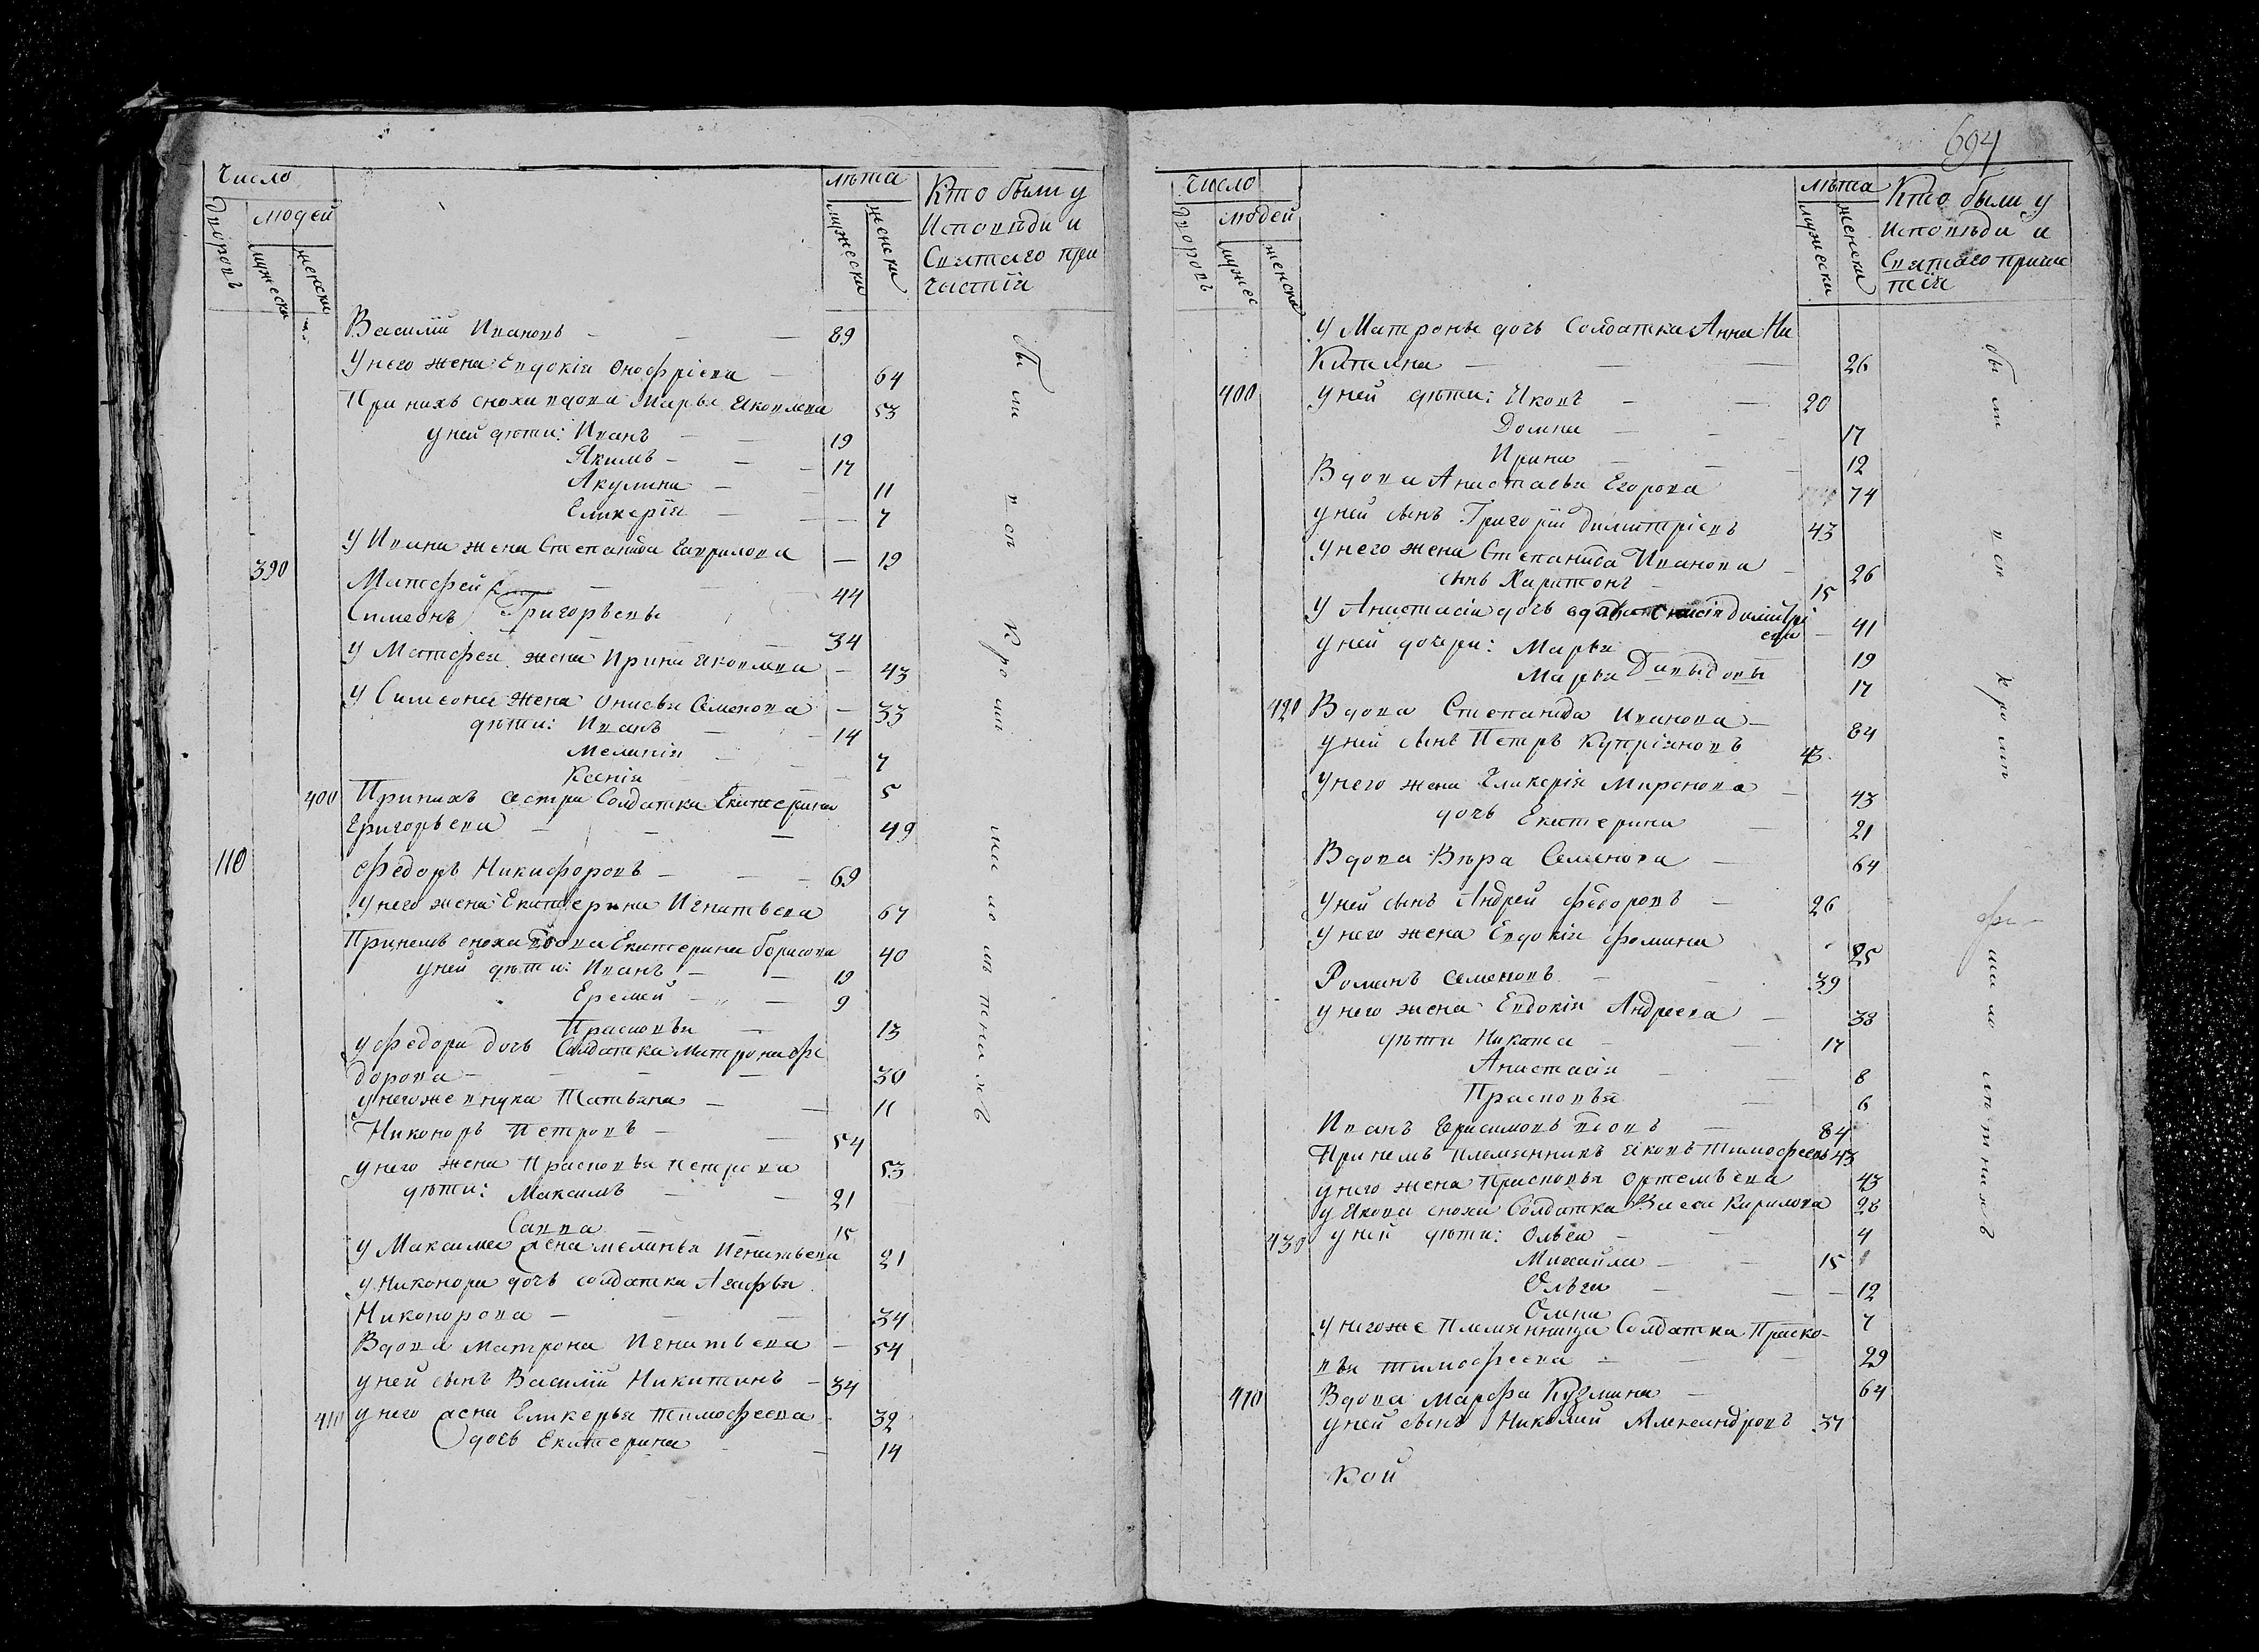 Число
людей
дворовъ
мужески
женски
лѣта
мужески
женски
Кто были у
Исповѣди и
Святаго при
частія
Василій Ивановъ 89
У него жена Евдокія Онофріева 64
При нихъ сноха вдова Марья Яковлева 53
у ней дѣти: Иванъ 19
Якимъ 17
Акулина 11
Гликерія 7
У Ивана жена Степанида Гаврилова 19
390
Матфей 44
Симеонъ Григорьевы 34
У Матфея жена Ирина Яковлева 43
У Симеона жена Онисья Семенова 33
дѣти: Иванъ 14
Меланія 7
Ксенія 5
400 При нихъ сестра Солдатка Екатерина
Григорьева 49
110 Федоръ Никифоровъ 69
У него жена Екатерина Игнатьева 67
При немъ сноха вдова Екатерина Борисова 40
у ней дѣти: Иванъ 19
Еремей 9
Прасковья 13
у Федора дочь Солдатка Матрона Фе
дорова 30
у негоже внука Татьяна 11
Никоноръ Петровъ 54
у него жена Прасковья Петрова 53
дѣти: Максимъ 21
Савва 15
у Максима жена Меланья Игнатьева 21
у Никонора дочь солдатка Агафья
Никонорова 34
Вдова Матрона Игнатьева 54
у ней сынъ Василій Никитинъ 34
410 у него жена Гликерья Тимофеева 32
дочь Екатерина 14
были
вси
кромѣ
малолѣтнихъ
694
Число
людей
дворовъ
мужес
женска
лѣта
мужески
женски
Кто были у
Исповѣди и
Святаго прича
тія
У Матроны дочь Солдатка Анна Ни
китина 26
400 у ней дѣти: Яковъ 20
Домна 17
Ирина 12
Вдова Анастасья Егорова 74
у ней сынъ Григорій Димитріевъ 43
у него жена Степанида Иванова 26
сынъ Харитонъ 15
У Анастасіи дочь Димитрі
ева 41
у ней дочери: Марья 19
Марья Давыдовы 17
420 Вдова Степанида Иванова 84
у ней сынъ Петръ Купріяновъ 43
У него жена Гликерія Миронова 43
дочь Екатерина 21
Вдова Вѣра Семенова 64
У ней сынъ Андрей Федоровъ 26
У него жена Евдокія Фомина 25
Романъ Семеновъ 39
у него жена Евдокія Андреева 38
дѣти Никита 17
Анастасія 8
Прасковья 6
Иванъ Герасимовъ вдовъ 84
При немъ племянникъ Яковъ Тимофеевъ 43
у него жена Прасковья Ортемьева 43
у Якова сноха Солдатка Васса Кирилова 28
430 у ней дѣти: Ольга 4
Михайла 15
Ольга 12
Олена 7
У негоже Племянница Солдатка Праско-
вья Тимофеева 29
410 Вдова Марфа Кузмина 64
У ней сынъ Николай Александровъ 37
кой
были
вси
кромѣ
малолѣтнихъ